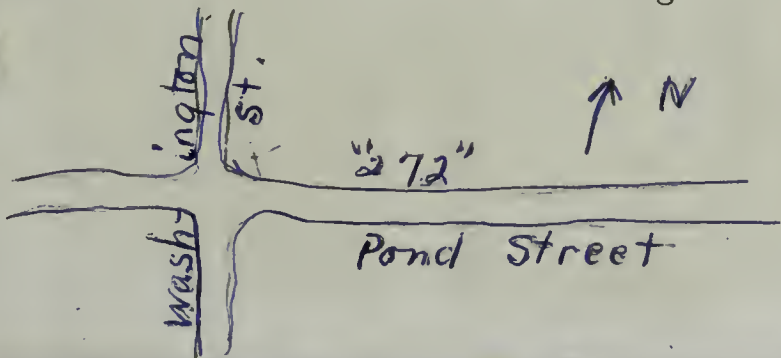 Washington St.
"272"
N
Pond Street